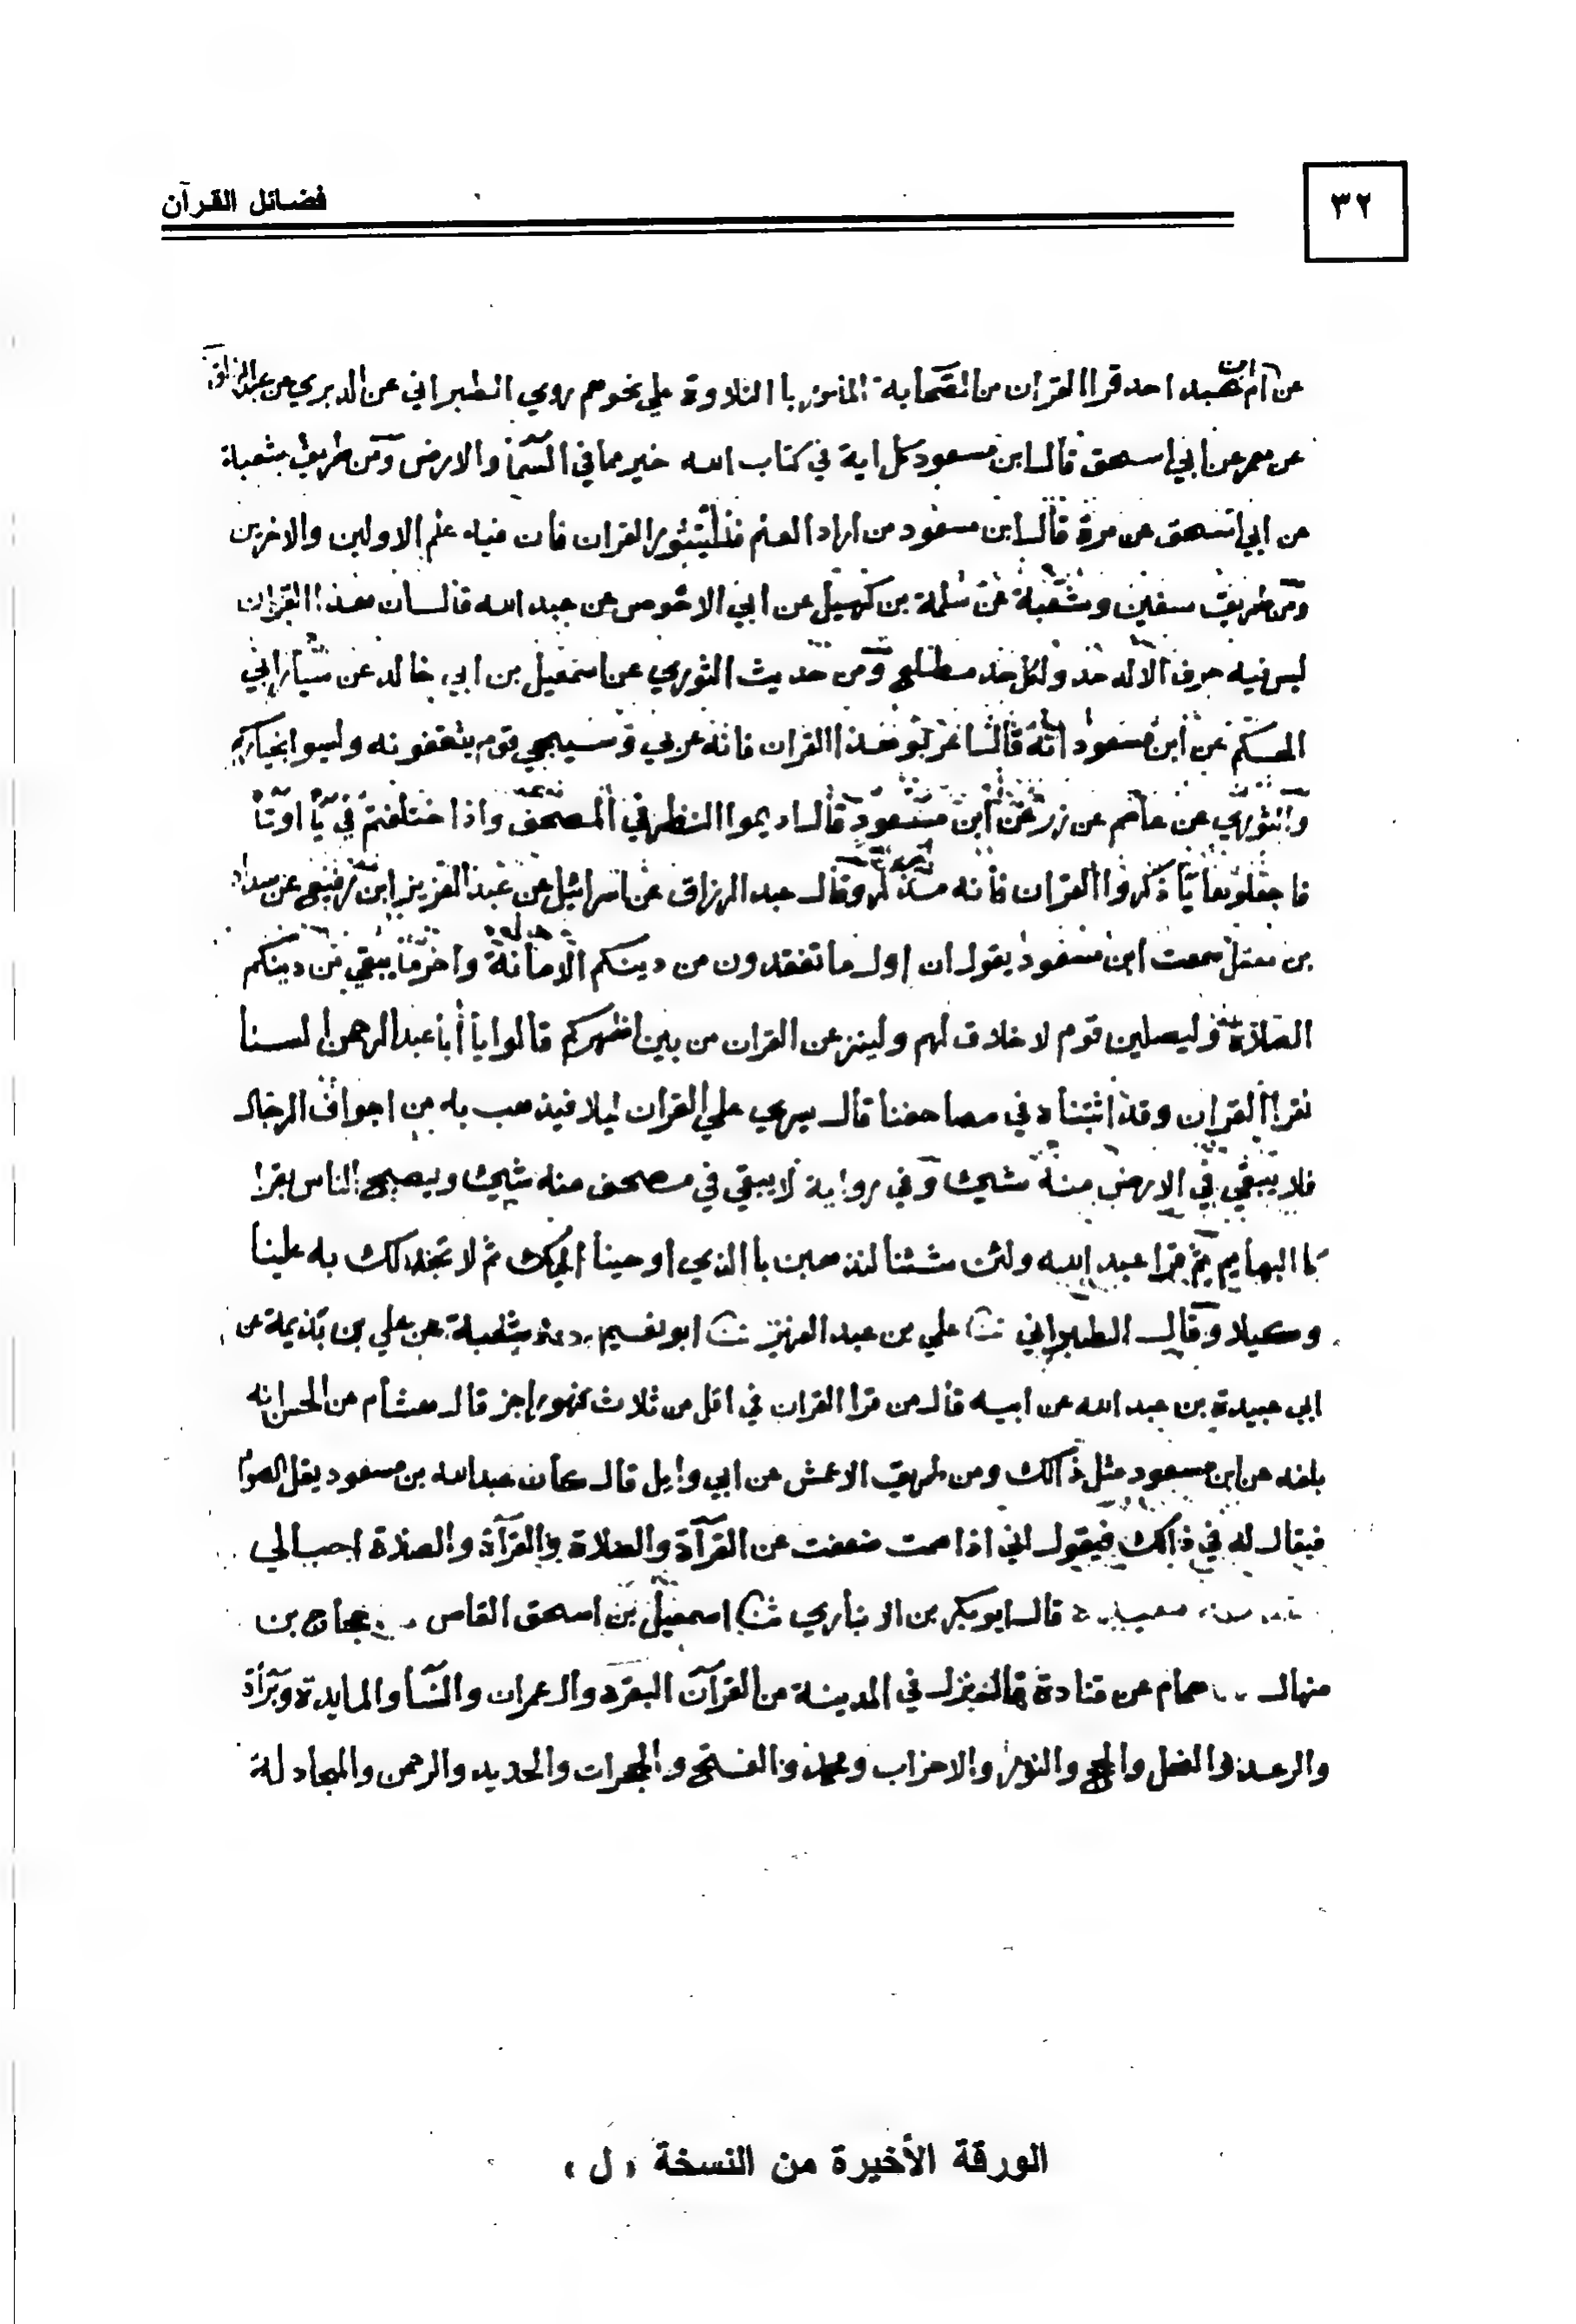 ٣٢
فضائل القرآن
عن ابن ام عبد احد قرا القران من الصحابة المأثور با التلاوة علي نحوهم روي الطبراني عن الدبري عن عبد الرزاق
عن معمر عن ابي اسحق قال ابن مسعود كل اية في كتاب الله خير مما في السمآ والارض ومن طريق شعبة
عن ابي اسحق عن مرة قال ابن مسعود من اراد العلم فليثور القران فان فيه علم الاولين والاخرين
ومن طريق سفين وشعبة عن سلمة بن كهيل عن ابي الاحوص عن عبد الله قال ان هذا القران
ليس فيه حرف الا له حد ولكل حد مطلع ومن حديث الثوري عن اسمعيل بن ابي خالد عن سيار ابي
الحكم عن ابن مسعود انه قال اعربو هذا القران فانه عربي وسيجي قوم يثقفونه وليسوا بخياركم
والثوري عن عاصم عن زر عن ابن مسعود قال اديموا النظر في المصحف واذا اختلفتم في يا او تا
فاجعلوها يا ذكروا القران فانه مذكر وقال عبد الرزاق عن اسرائيل عن عبد العزيز ابن رفيع عن سداد
بن معقل سمعت ابن مسعود يقول ان اول ما تفقدون من دينكم الامانة واخر ما يبقي من دينكم
الصلاة وليصلين قوم لا خلاق لهم ولينزعن القران من بين اظهركم قالوا يا أبا عبد الرحمن السنا
نقرا القران وقد اثبتناه في مصاحفنا قال يسري علي القران ليلا فيذهب به من اجواف الرجال
فلا يبقي في الارض منه شيئ وفي رواية لا يبقي في مصحف منه شيئ ويصبح الناس فقرا
كا البهايم ثم قرا عبد الله ولئن شئنا لنذهبن با الذي اوحينا اليك ثم لا تجد لك به علينا
وكيلا وقال الطبراني ثنا علي بن عبد العزيز ثنا ابو نعيم شعبة عن علي بن بذيمة عن
ابي عبيدة بن عبد الله عن ابيه قال من قرا القران في اقل من ثلاث فهو راجز قال هشام عن الحسن انه
بلغه عن ابن مسعود مثل ذالك ومن طريق الاعمش عن ابي وايل قال كان عبد الله بن مسعود يقل الصوم
فيقال له في ذالك فيقول اني اذا صمت ضعفت عن القرآة والصلاة والقرآة والصلاة احب الي
قال ابو بكر بن الانباري ثنا اسمعيل بن اسحق القاص حجاج بن
منهال همام عن قتادة قال نزل في المدينة من القرآن البقرة وال عمران والنسآ والمايدة وبرآة
والرعد والنحل والحج والنور والاحزاب ومحمد والفتح والحجرات والحديد والرحمن والمجادلة
الورقة الأخيرة من النسخة « ل »